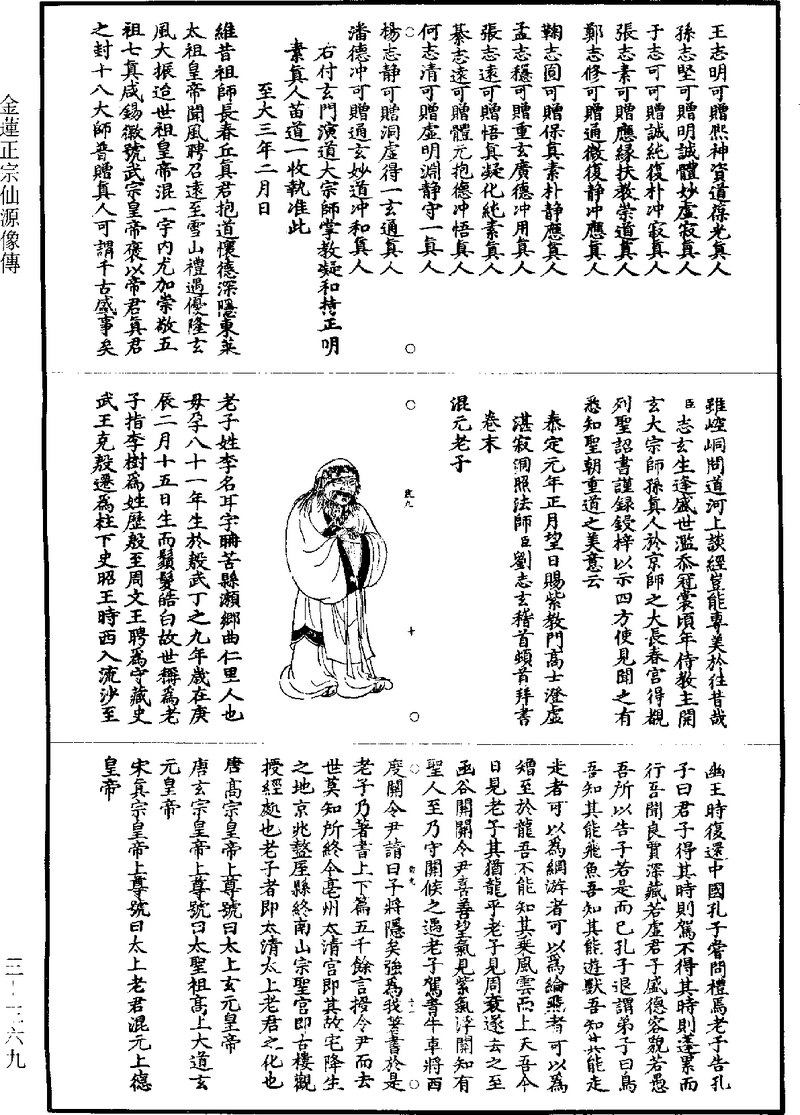 金蓮正宗仙源像傳
王志明可贈熙神資道葆光真人
孫志堅可贈明誠體妙虛寂真人
于志可可贈誠純復朴冲寂真人
張志素可贈應緣扶教崇道真人
鄭志修可贈通微復静冲應真人
鞠志圓可贈保真素朴静應真人
孟志穩可贈重玄廣德冲用真人
張志遠可贈悟真凝化純素真人
綦志遠可贈體元抱德冲悟真人
何志清可贈虛明淵静守一真人
楊志静可贈洞虛得一玄通真人
潘德冲可贈通玄妙道冲和真人
右付玄門演道大宗師掌教凝和持正明
素真人苗道一收執准此
至大三年二月日
維昔祖師長春丘真君抱道懷德深隱東萊
太祖皇帝聞風聘召遠至雪山禮遇優隆玄
風大振迨世祖皇帝混一宇內尤加崇敬五
祖七真咸錫徽號武宗皇帝褒以帝君真君
之封十八大師普贈真人可謂千古盛事矣
雖崆峒問道河上談經豈能專美於往昔哉
臣志玄生逢盛世濫忝冠裳頃年侍教主開
玄大宗師孫真人於京師之大長春宮得觀
列聖詔書謹録鋟梓以示四方使見聞之有
悉知聖朝重道之美意云
泰定元年正月望日賜紫教門高士澄虛
湛寂洞照法師臣劉志玄稽首頓首拜書
卷末
混元老子
老子姓李名耳字聃苦縣瀨鄉曲仁里人也
母孕八十一年生於殷武丁之九年歲在庚
辰二月十五日生而鬚髮皓白故世稱為老
子指李樹為姓歷殷至周文王聘為守藏史
武王克殷遷為柱下史昭王時西入流沙至
幽王時復還中國孔子嘗問禮焉老子告孔
子曰君子得其時則駕不得其時則蓬累而
行吾聞良賈深藏若虛君子盛德容貌若愚
吾所以告子若是而已孔子退謂弟子曰鳥
吾知其能飛魚吾知其能遊獸吾知其能走
走者可以為網游者可以為綸飛者可以為
矰至於龍吾不能知其乘風雲而上天吾今
日見老子其猶龍乎老子見周衰遂去之至
函谷關關令尹喜善望氣見紫氣浮關知有
聖人至乃守關候之遇老子駕青牛車將西
度關令尹請曰子將隱矣強為我著書於是
老子乃著書上下篇五千餘言授令尹而去
世莫知所終今亳州太清宮即其故宅降生
之地京兆盩厔縣終南山宗聖宮即古樓觀
授經處也老子者即太清太上老君之化也
唐高宗皇帝上尊號曰太上玄元皇帝
唐玄宗皇帝上尊號曰太聖祖高上大道玄
元皇帝
宋真宗皇帝上尊號曰太上老君混元上德
皇帝